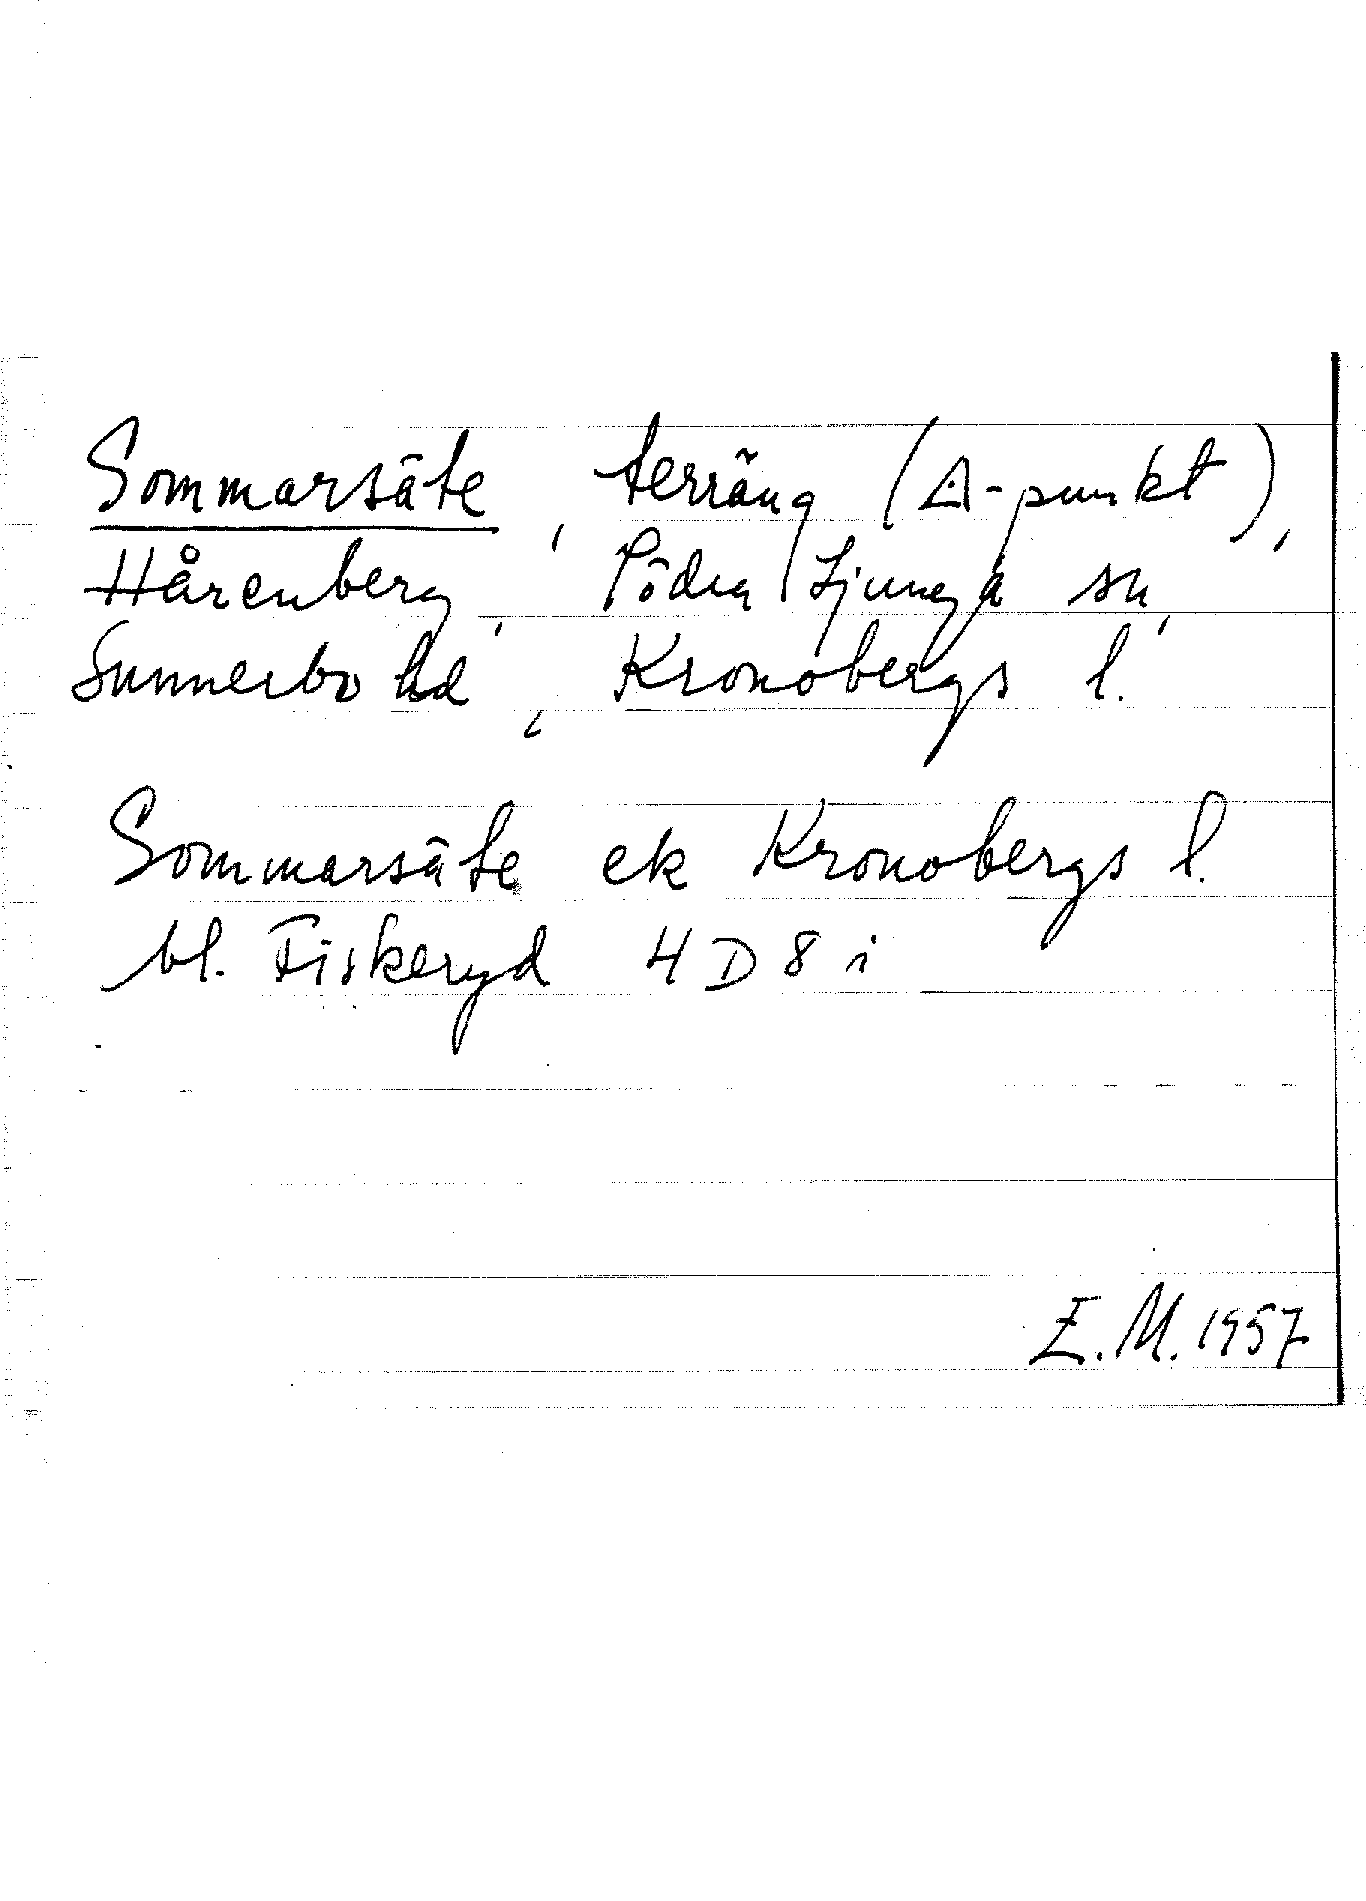 Sommarsäte, terräng (△-punkt),
Hårenberg, Södra Ljunga sn,
Sunnerbo hd, Kronobergs l.
Sommarsäte ek Kronobergs l.
bl. Fiskeryd 4 D 8 i
E.M. 1957